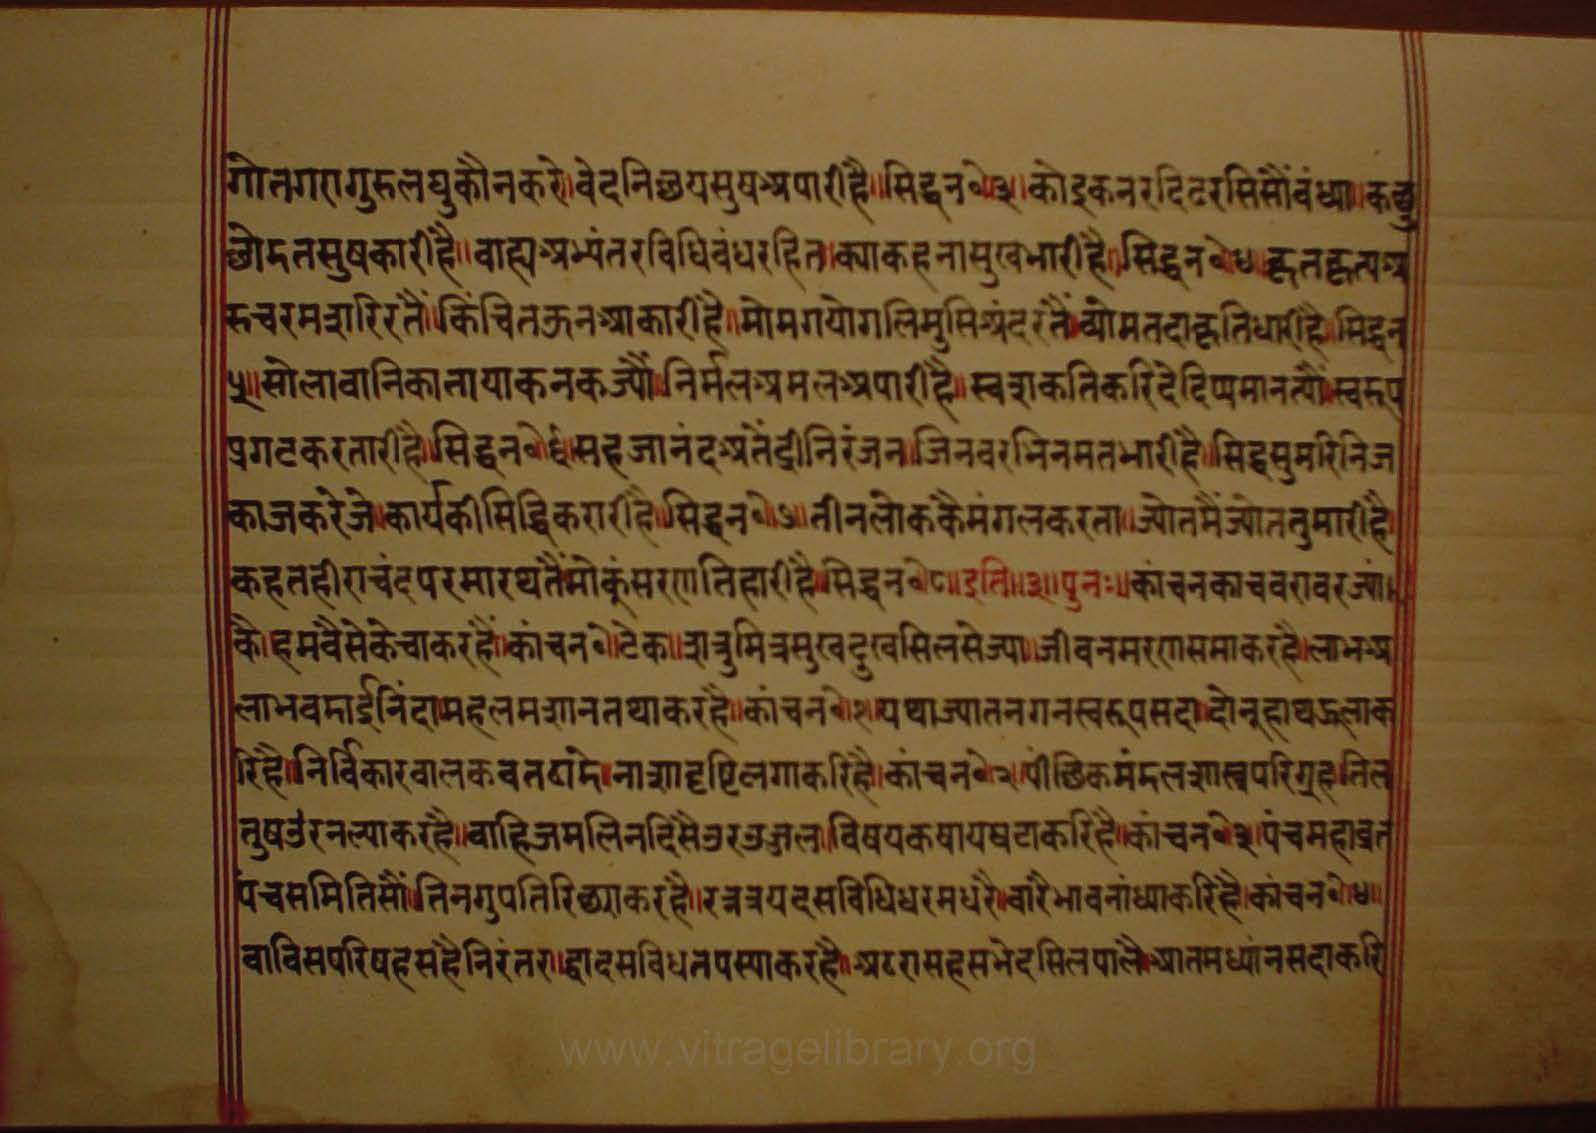 गोतगरागुरुलघुकौनकरे॥वेदनिछयसुषअपारीहै॥सिद्धन॰॥३॥कोइकनरदिढरसिसौंबंध्या॥कछु
छोदतसुषकारीहै॥बाह्यअभ्यंतरविधिबंधरहित॥क्याकहनासुखभारीहै॥सिद्धन॰॥४॥कृतकृत्यअ
रुचरमशरिरतैं॥किंचितऊनआकारीहै॥मोमगयोगलिमुसिअंदरतैं॥व्योमतदाकृतिधारीहै॥सिद्धन
५॥सोलावानिकातायाकनकज्यौं॥निर्मलअमलअपारीहै॥स्वशकतिकरिदेदिप्यमानत्यौं॥स्वरूप
प्रगटकरतारीहै॥सिद्धन॰॥६॥सहजानंदअतेंद्रीनिरंजन॥जिनवरभिनमतभारीहै॥सिद्धसुमरिनिज
काजकरेजे॥कार्यकीसिद्धिकरारीहै॥सिद्धन॰॥७॥तीनलोककैमंगलकरता॥ज्योतमैंज्योततुमारीहै॥
कहतहीराचंदपरमारथतैंमोकूंसरणतिहारीहै॥सिद्धन॰॥८॥इति॥३॥पुनः॥कांचनकाचबराबरज्यां॥
कै॥हमवैसेकेचाकरहैं॥कांचन॰॥टेक॥शत्रुमित्रसुखदुखसिलसेज्या॥जीवनमरणसमाकरहै॥लाभअ
लाभबमाईनिंदा॥महलमशानतथाकरहै॥कांचन॰॥१॥यथाज्यातनगनस्वरूपसदा॥दोनूहाथऊलाक
रिहै॥निर्विकारबालकवतठांदे॥नाशादृष्टिलगाकरिहै॥कांचन॰॥२॥पींछिकमंदलशास्त्रपरिग्रह॥तिल
तुषउंरनल्याकरहै॥बाहिजमलिनदिसैउरउज्जल॥विषयकषायषटाकरिहै॥कांचन॰॥३॥पंचमहाव्रत
पंचसमितिसौं॥तिनगुपतिरिछ्याकरहै॥रत्नत्रयदसविधिधरमधरै॥बारैभावनांध्याकरिहै॥कांचन॰॥४॥
बाविसपरिषहसहैनिरंतर॥द्वादसविधतपस्याकरहै॥अठरासहसभेदसिलपालै॥आतमध्यांनसदाकरि
www.vitragelibrary.org